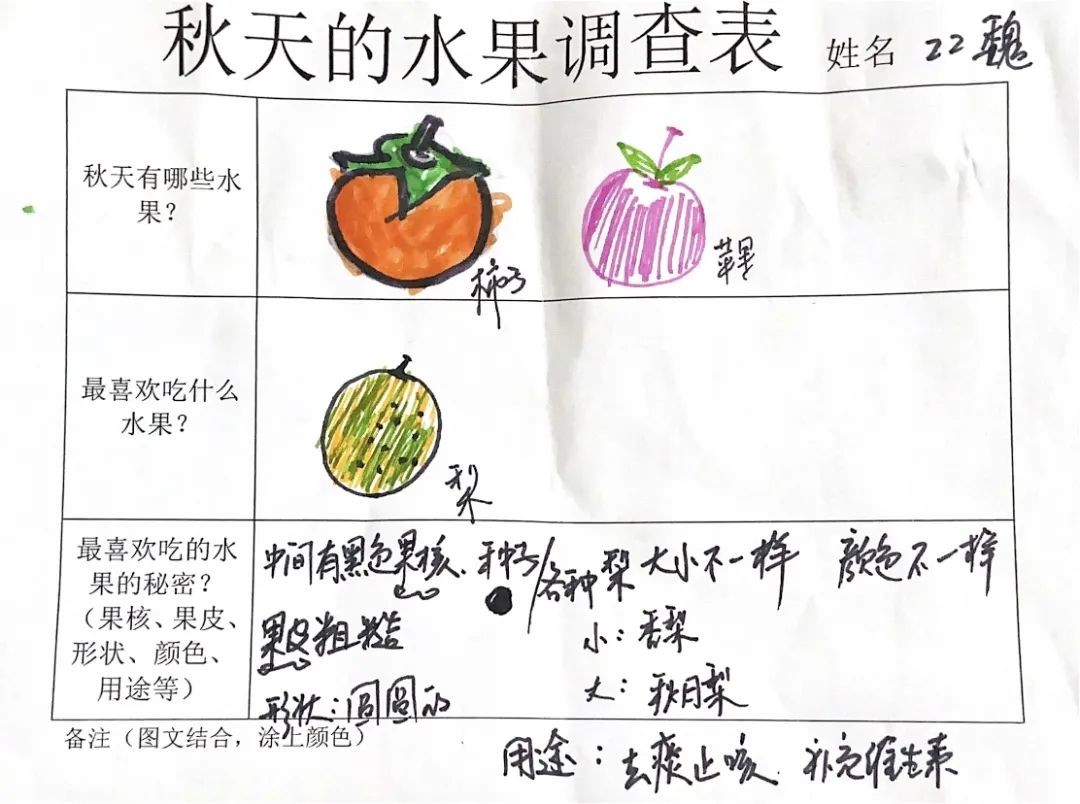 秋天的水果调查表 姓名 22 魏
秋天有哪些水
果？
柿子
苹果
最喜欢吃什么
水果？
梨
最喜欢吃的水
果的秘密？
（果核、果皮、
形状、颜色、
用途等）
中间有黑色果核、种子/各种梨 大小不一样 颜色不一样
果皮粗糙 小：香梨
形状：圆圆的 大：秋月梨
备注（图文结合，涂上颜色）
用途：去痰止咳 补充维生素